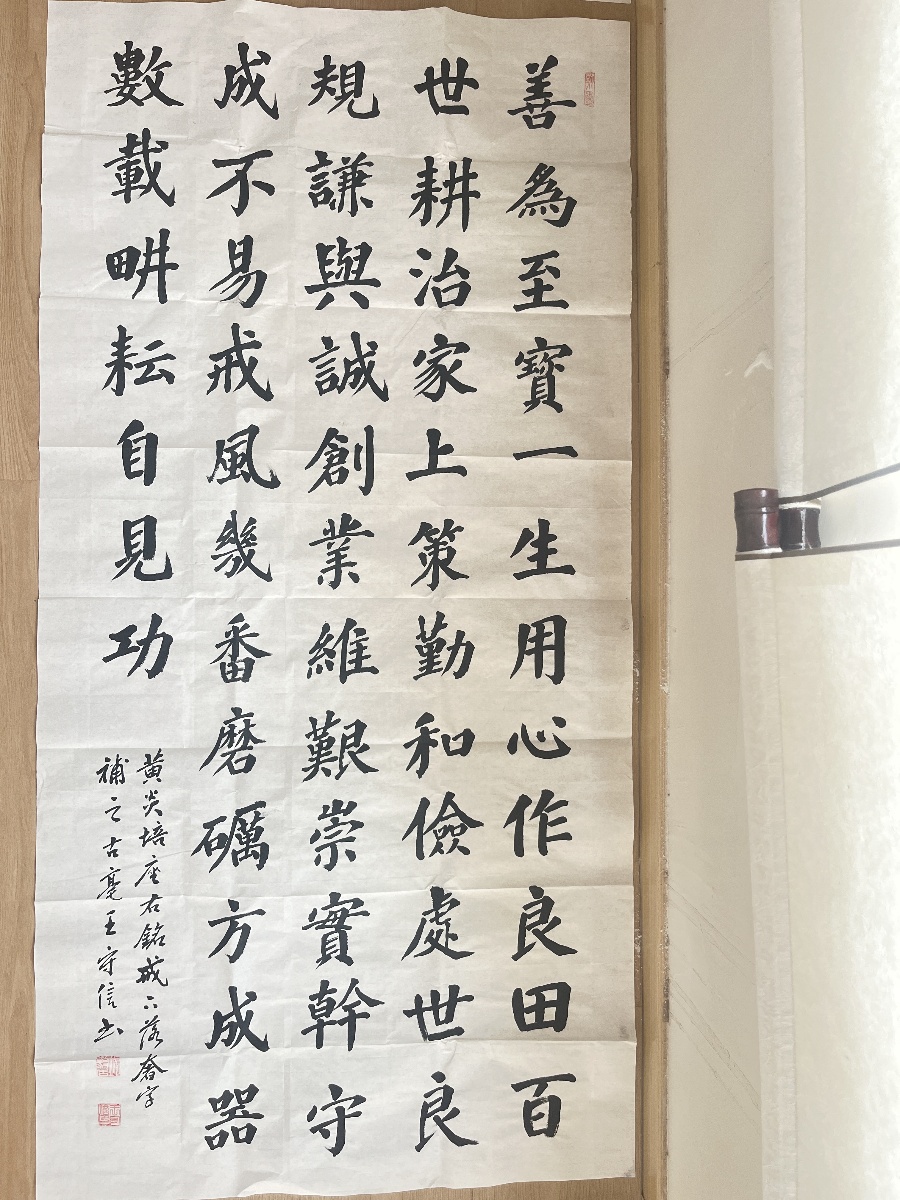 善為至寳一生用心作良田百
世耕治家上策勤和儉處世良
規謙與誠創業維艱崇實幹守
成不易戒風幾番磨礪方成器
數載畊耘自見功
黄炎培座右銘戒下落奢字
補之古亳王守信书